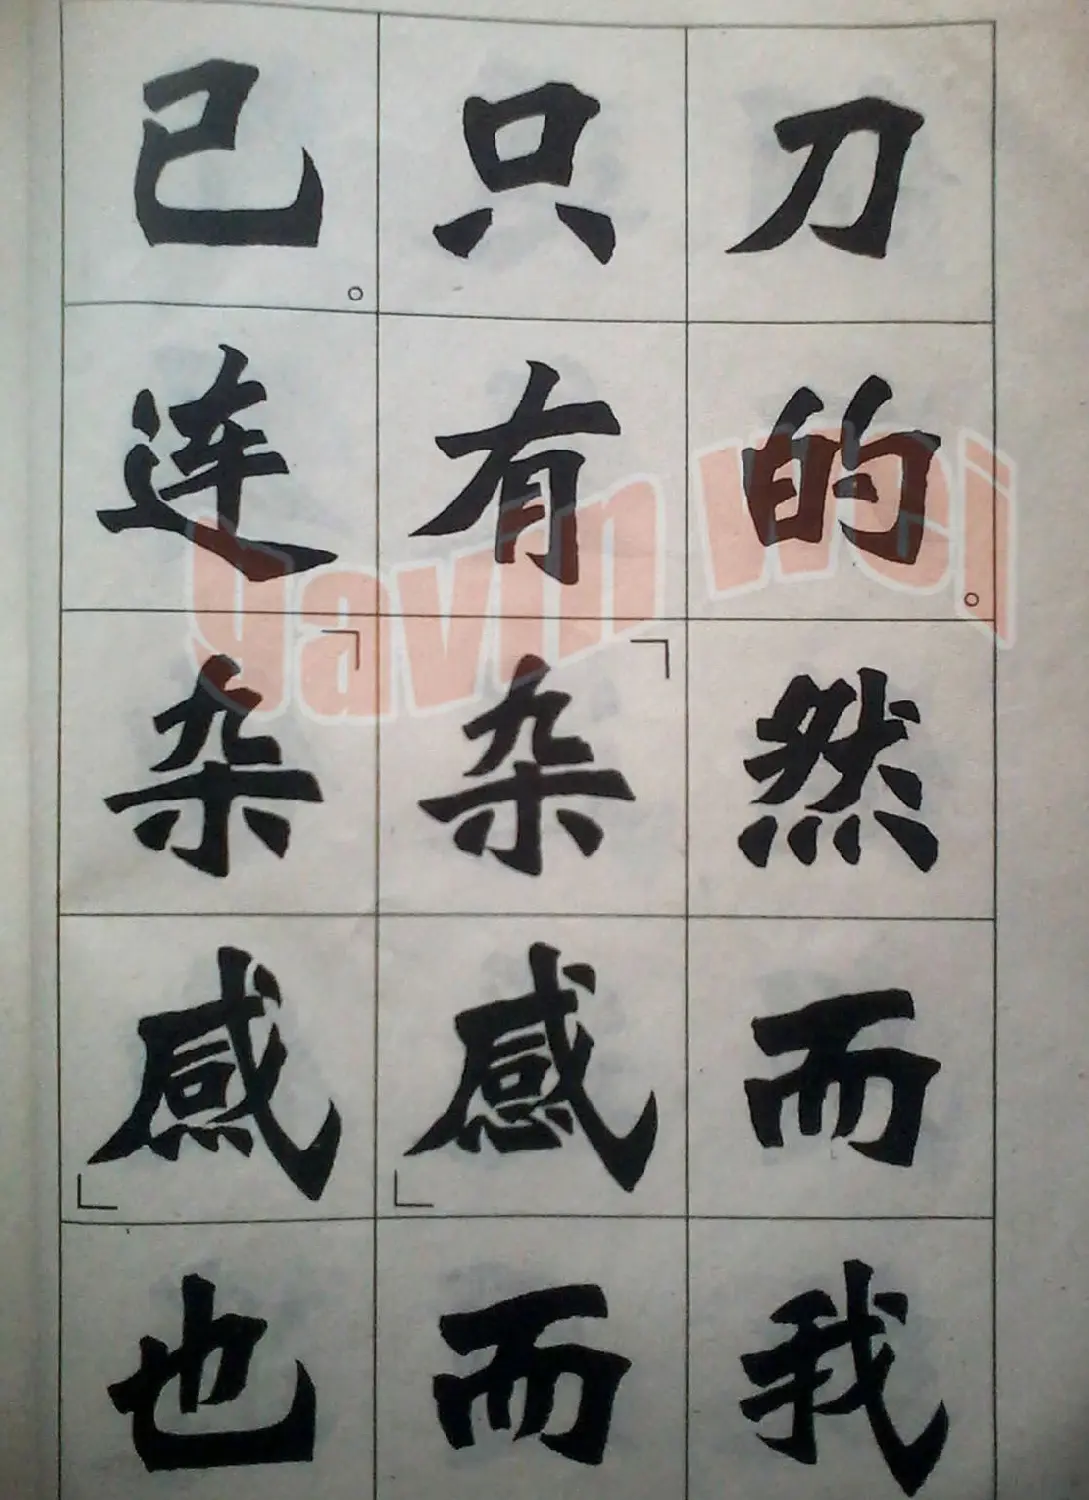 刀的。然而我
只有「杂感」而
已。连「杂感」也
gavin wei